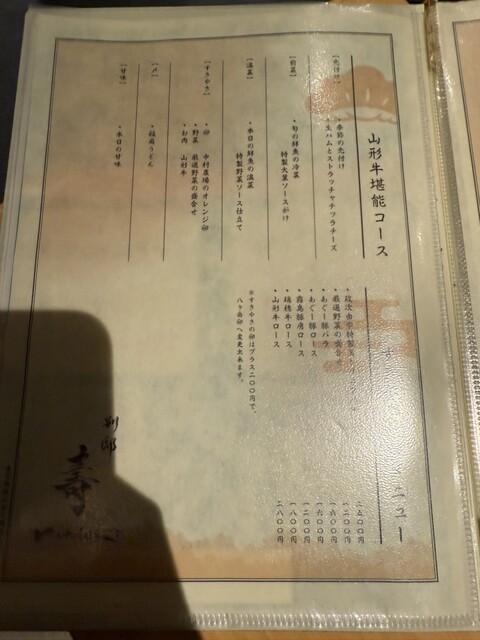 山形牛堪能コース
【先付け】
・季節の先付け
・生ハムとストラッチャテッラチーズ
【前菜】
・旬の鮮魚の冷菜
特製大葉ソースがけ
【温菜】
・本日の鮮魚の温菜
特製野菜ソース仕立て
【すきやき】
・卵 中村農場のオレンジ卵
・野菜 厳選野菜の盛合せ
・お肉 山形牛
【〆】
・稲庭うどん
【甘味】
・本日の甘味
ニュー
・厳選野菜の盛合せ
・あぐー豚バラ
・あぐー豚ロース
・霧島豚肩ロース
・瑞穂牛ロース
・山形牛ロース
一二〇〇円
一八〇〇円
二八〇〇円
※すきやきの卵はプラス二〇〇円で、
八ヶ岳卵へ変更出来ます。
別邸
寿